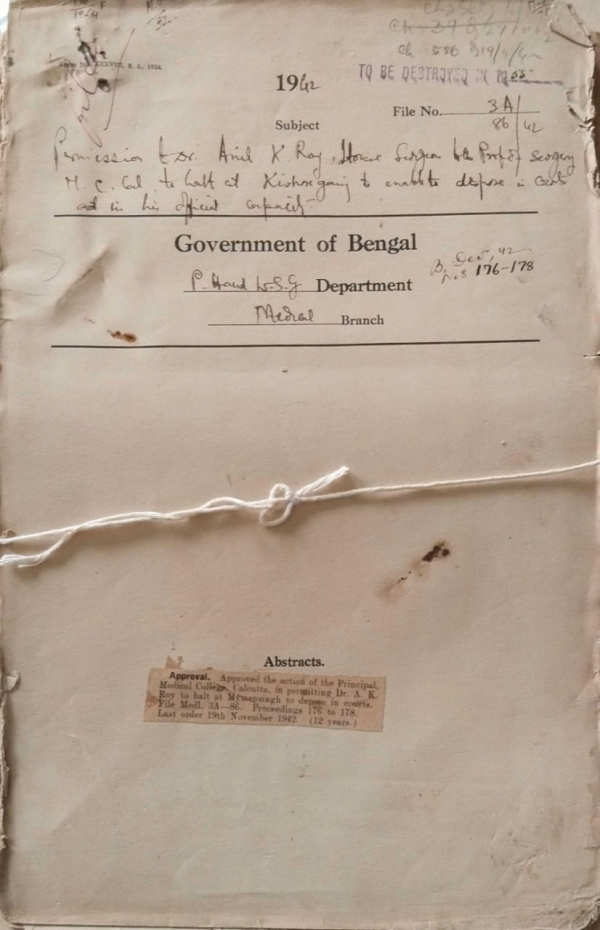 Ch 556 8/9/42
TO BE DESTROYED IN 1955
1942
File No. 3A/86/42
Subject
Permission to Dr. Anil K Roy, House Surgeon to the Prof of Surgery
M. C. Cal. to halt at Kishoreganj to enable to depose in Courts
in his official capacity
Government of Bengal
P. H and L.S.G Department
B. Dec, 42
176-178
Medical Branch
Abstracts.
Approval. Approved the action of the Principal,
Medical College, Calcutta, in permitting Dr. A. K.
Roy to halt at Mymensingh to depose in courts.
File Medl. 3A—86. Proceedings 176 to 178.
Last order 19th November 1942. (12 years.)